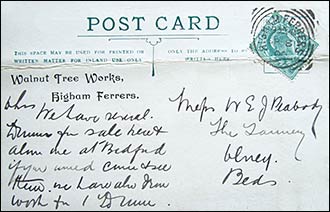 POST CARD
THIS SPACE MAY BE USED FOR PRINTED OR
WRITTEN MATTER FOR INLAND USE ONLY
ONLY THE ADDRESS TO BE
WRITTEN HERE
HIGHAM FERRERS
Walnut Tree Works,
Higham Ferrers.
We have several
Drums for sale here &
also one at Bedford
if you need come & see
them we have also Iron
work for 1 Drum.
Messrs W E & J Peabody
The Tannery
Olney.
Beds.